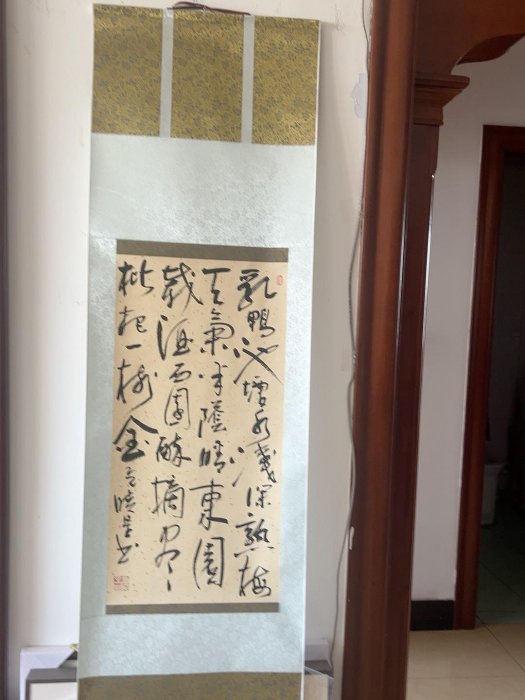 乳鴨池塘水淺深熟梅
天氣半陰晴東園
載酒西園醉摘尽
枇杷一树金 书